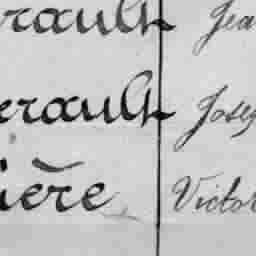 rault Jea
erault Josep
ière Victor